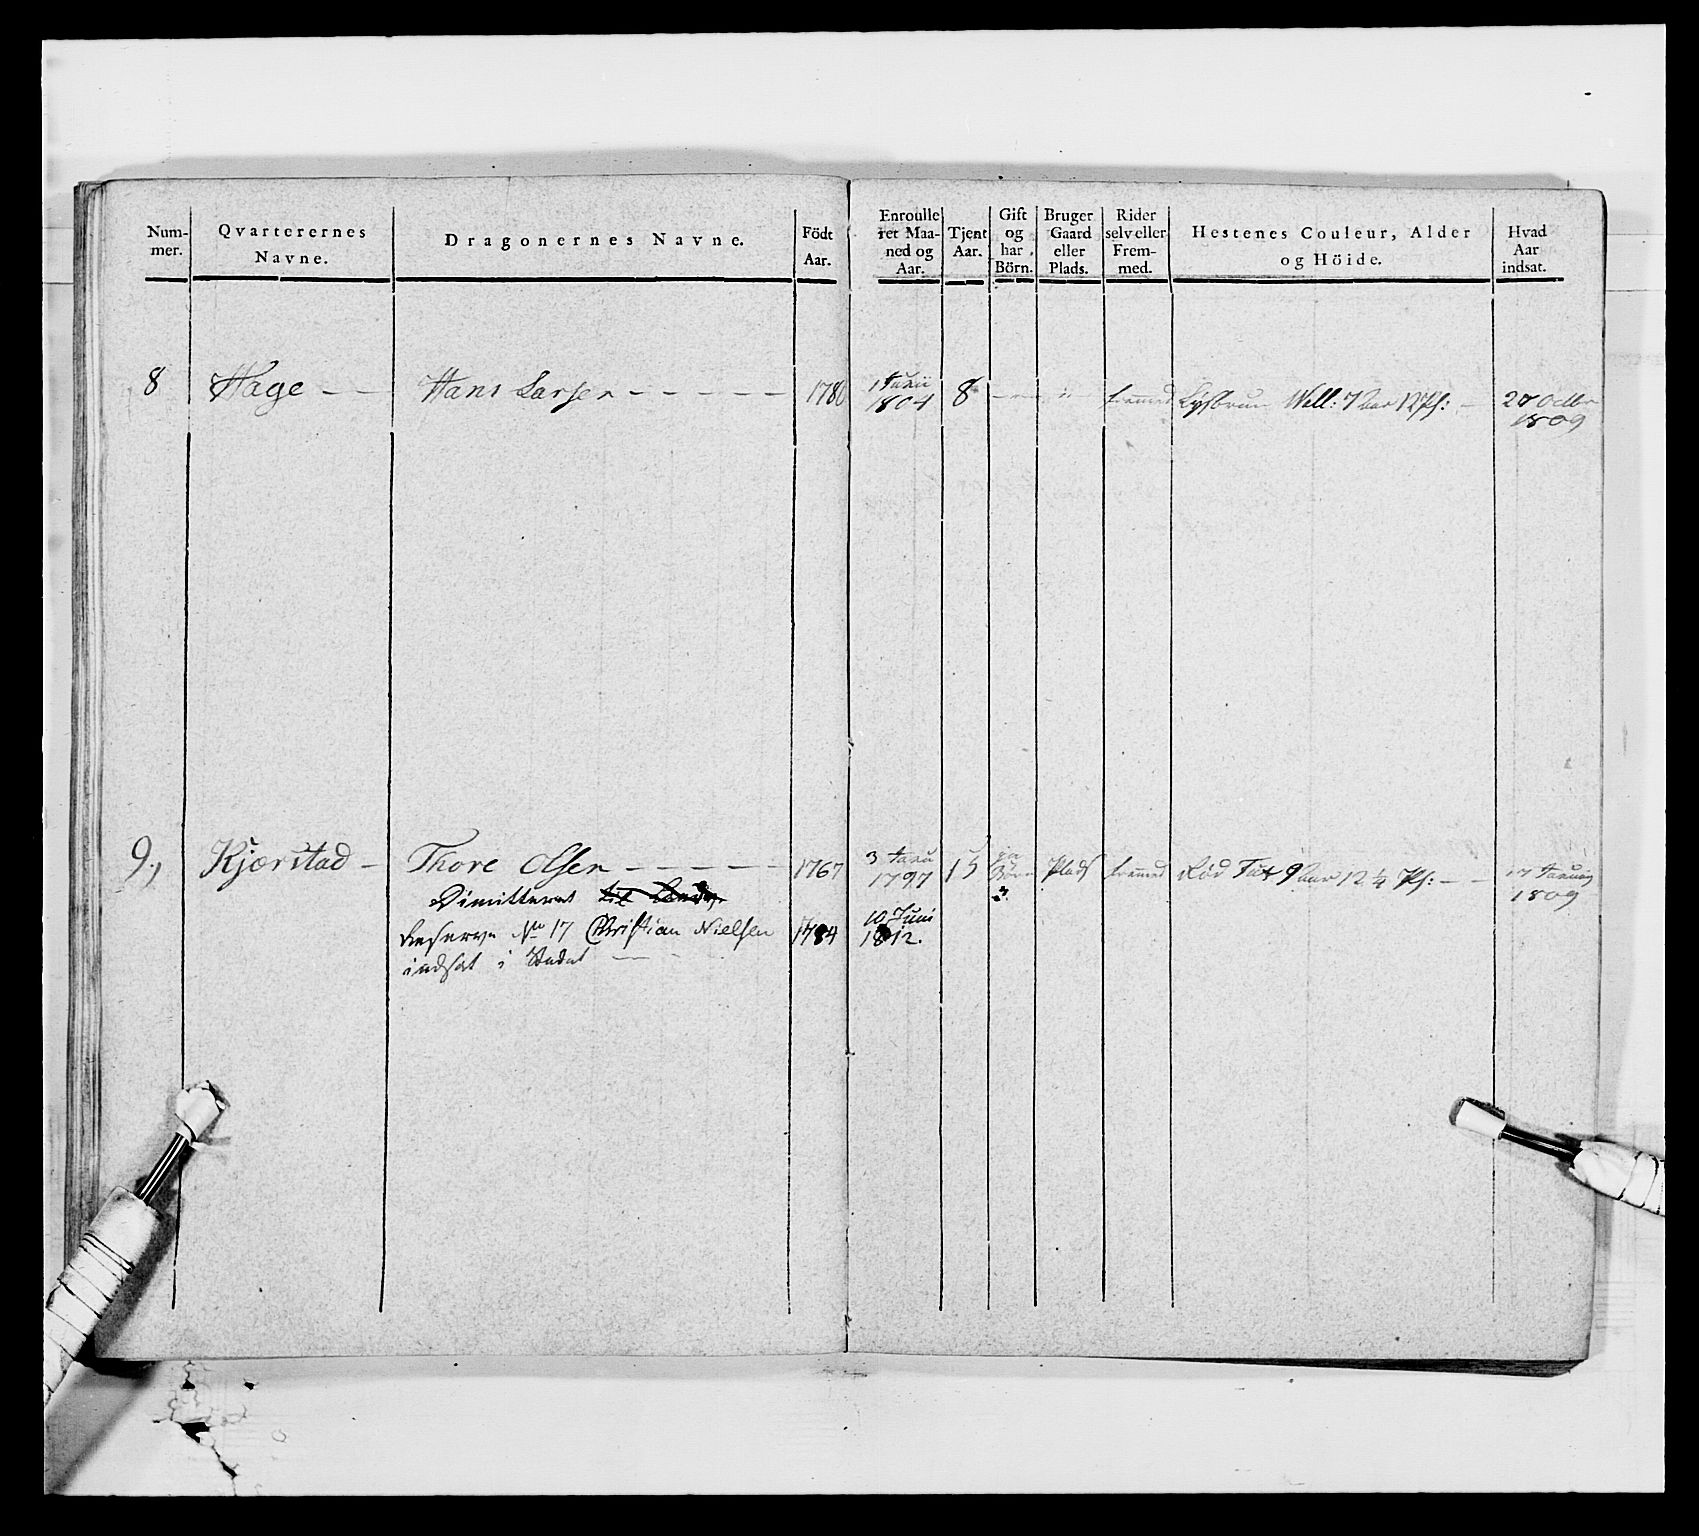 Num-
mer.
Qvarterernes
Navne.
Dragonernes Navne.
Födt
Aar.
Enroulle
ret Maa-
ned og
Aar.
Tjent
Aar.
Gift
og
har
Börn.
Bruger
Gaard
eller
Plads.
Rider
selv eller
Frem-
med.
Hestenes Couleur, Alder
og Höide.
Hvad
Aar
indsat.
8 Hage - - Hans Larsen - - - - - 1780 1804 8 fremmed Lysbrun Well: 7 Aar 12 Pf: - 1809
9, Kjærstad - Thore Olsen - - - - - 1767 1797 15 ja Börn 3 Plads fremmed Rød 9 Aar 12 ¼ Pf: - - 17 1809
Dimitteret
Reserve No 17 Christian Nielsen 1784 10 Juni 1812.
indsat i Stedet - -